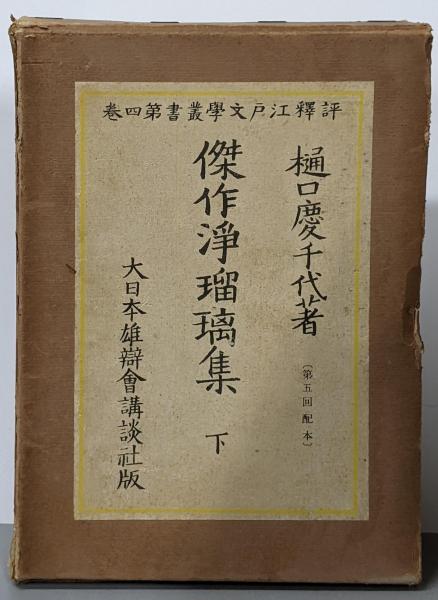 評釋江戸文學叢書第四卷
樋口慶千代著
(第五回配本)
傑作淨瑠璃集
下
大日本雄辯會講談社版